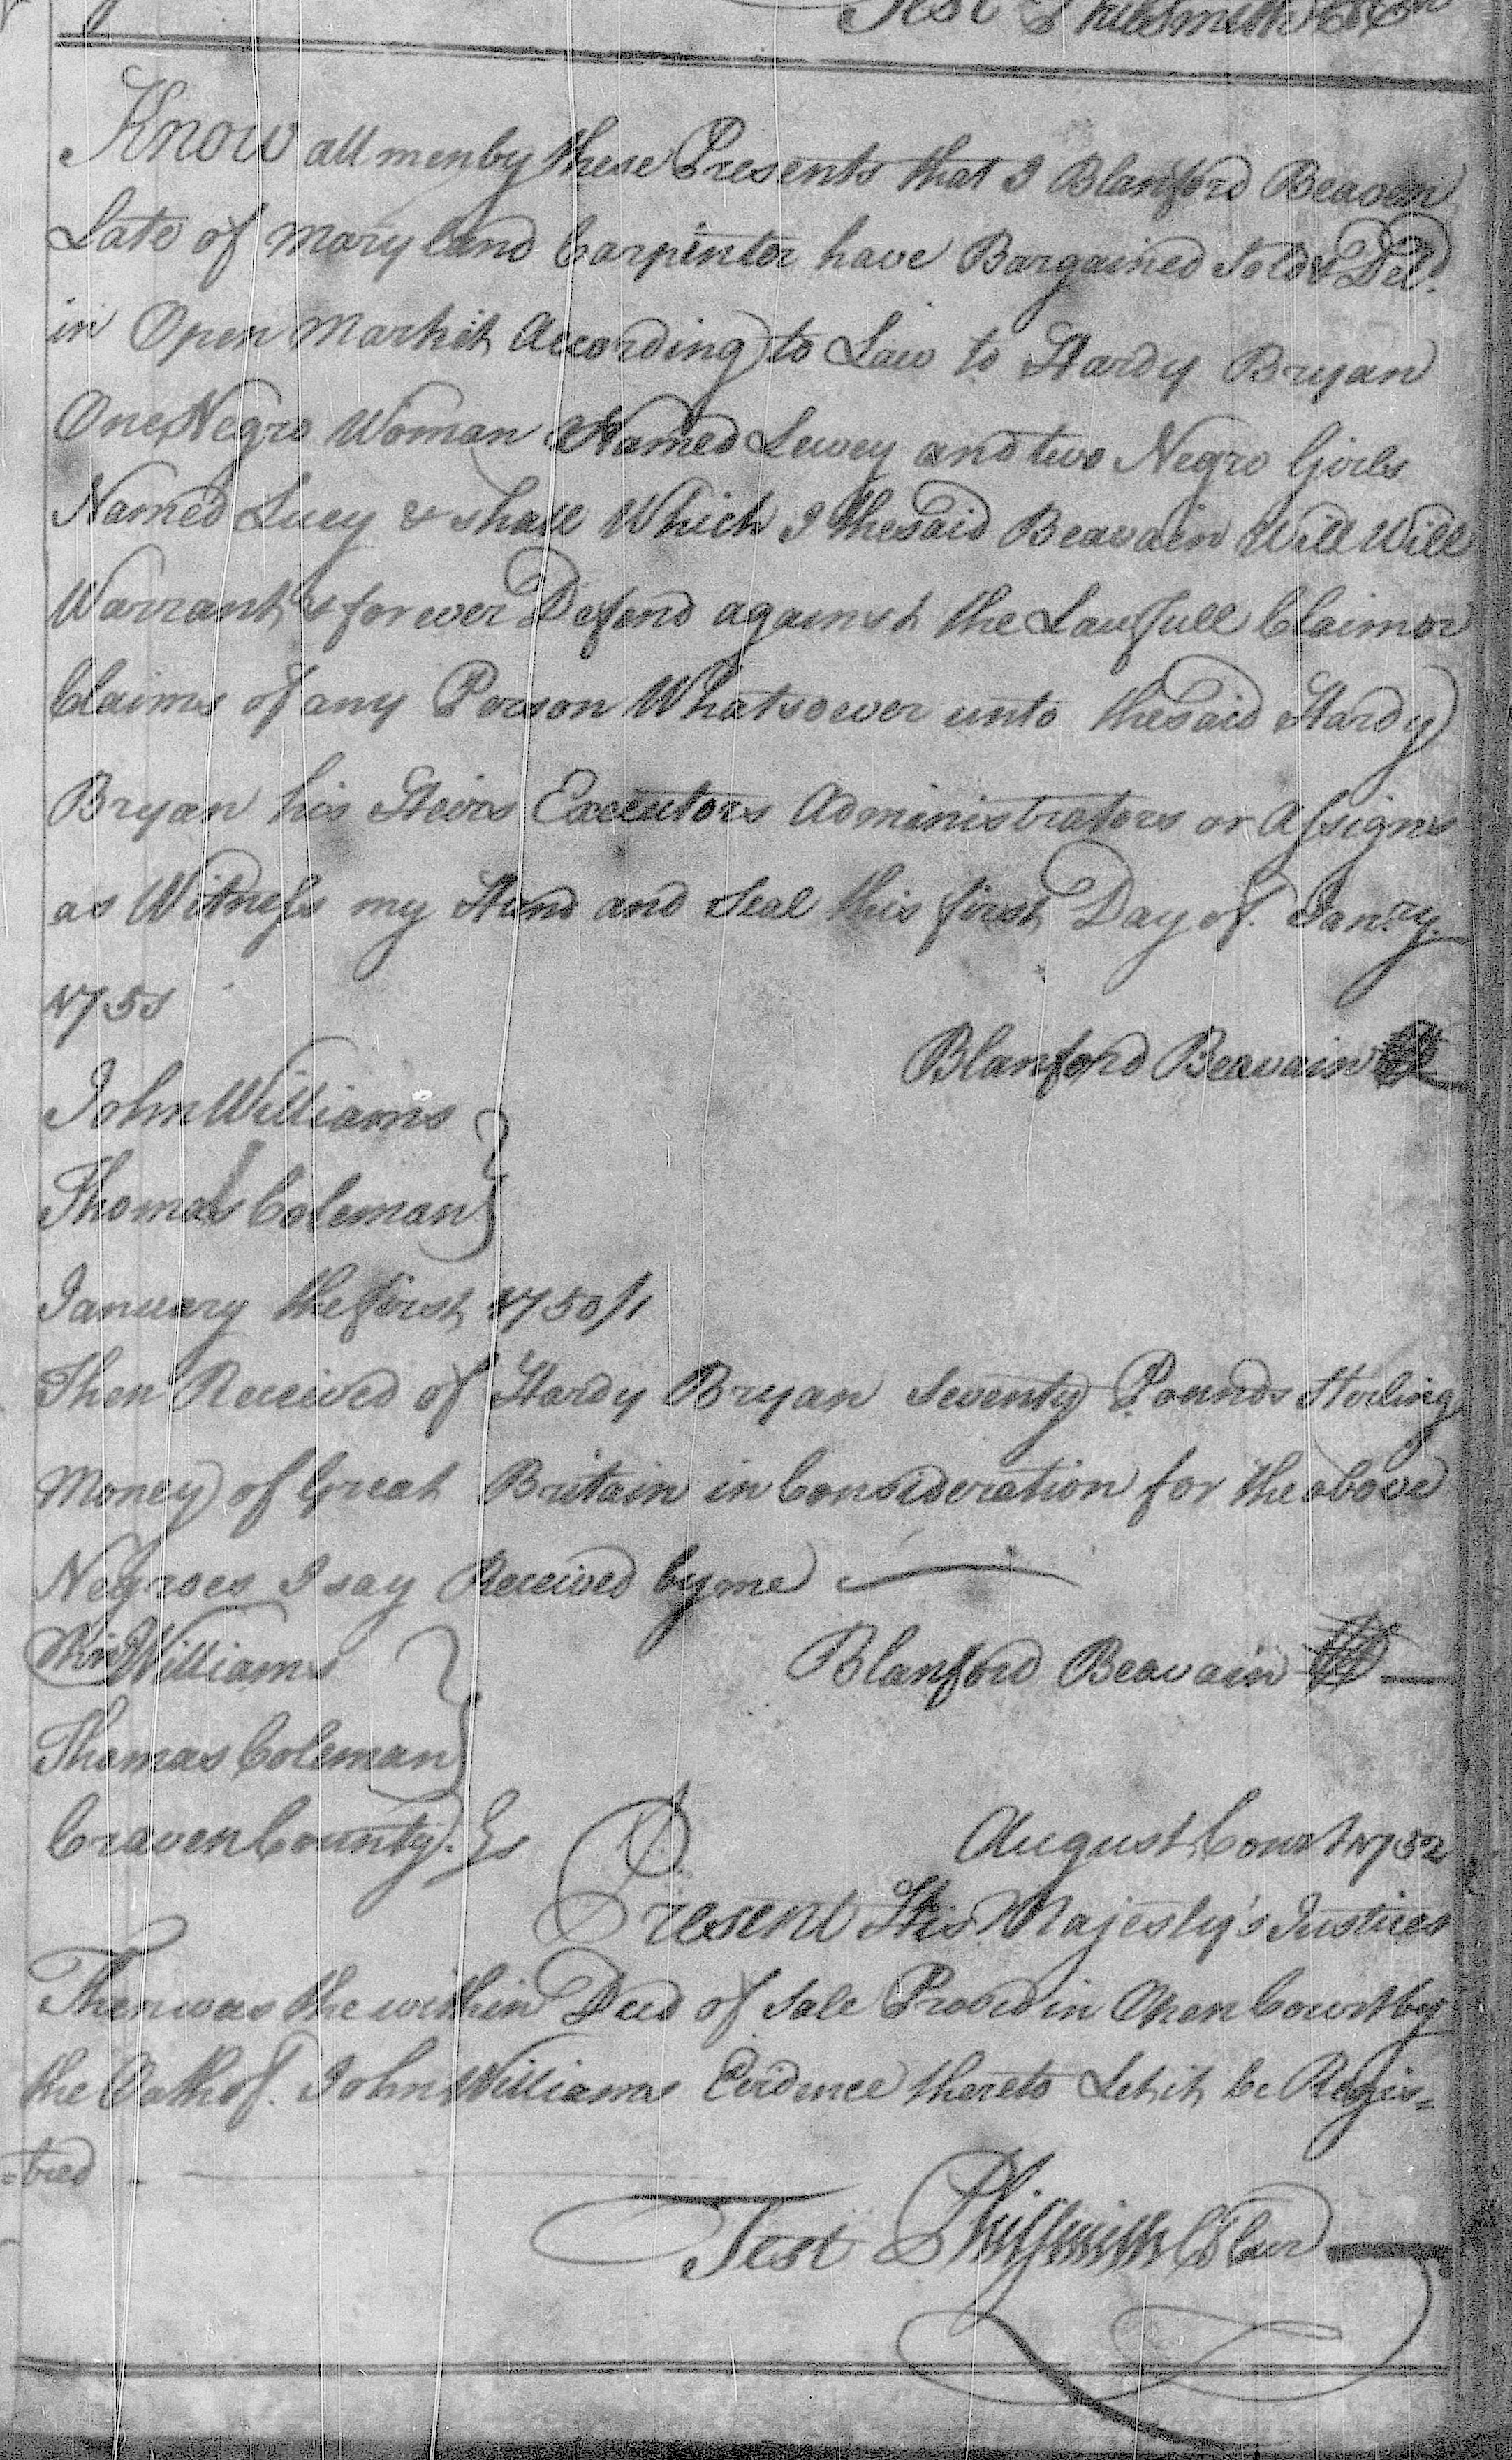 Test
Know all men by these Presents that I Blanford Beavain
Late of Maryland Carpenter have Bargained Sold & Del.
in Open Markit According to Law to Hardy Bryan
One Negro Woman Named Lewey and two Negro Girls
Named Lucy & shall Which I the said Beavain Will Will
Warrant & forever Defend against the Lawfull Claim or
Claims of any Person Whatsoever unto the said Hardy
Bryan his Heirs Executors Administrators or Assigns
as Witness my Hand and Seal this first Day of Janry.
1751
Blanford Beavain
John Williams
Thomas Coleman
January the first 1750/1
Then Received of Hardy Bryan Seventy Pounds Sterling
Money of Great Britain in Consideration for the above
Negroes I say Received by me
Blanford Beavain
Williams
Thomas Coleman
Craven County. Ss August Court 1752
Present His Majesty's Justices
Then was the within Deed of Sale Proved in Open Court by
the Oath of John Williams Evidence thereto Let it be Regis=
=tred
Test Phil Smith Cl Cur